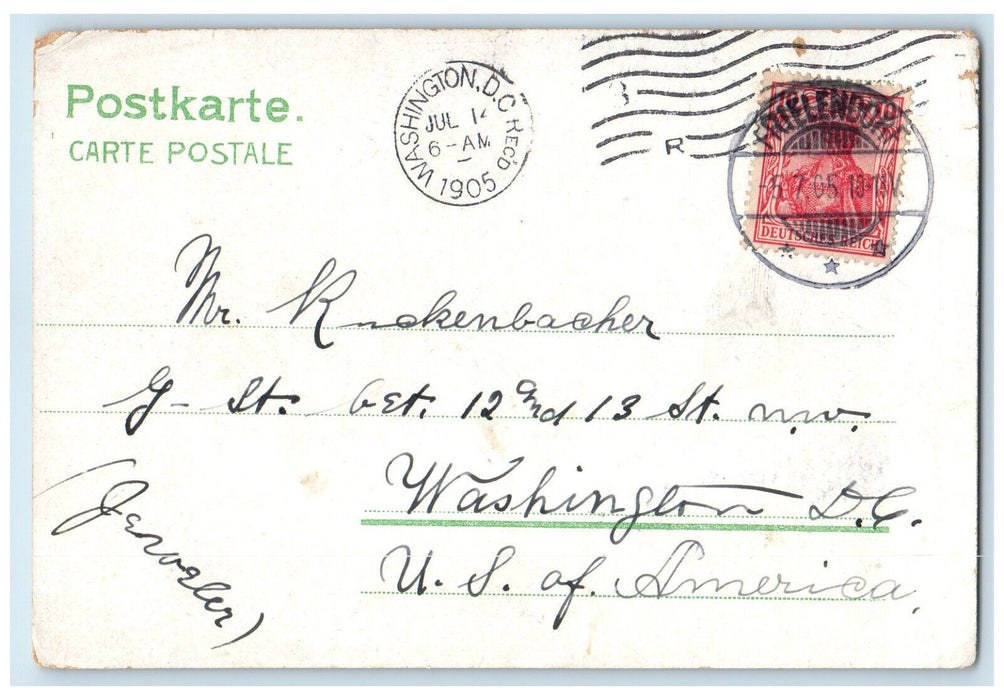 Postkarte.
CARTE POSTALE
WASHINGTON, D.C. REC'D
JUL 14
6-AM
1905
R
10
DEUTSCHES REICH
Mr. Knockenbacher
G- St. bet. 12 and 13 St. n.w.
Washington D.C.
U. S. of America.
(Jeweler)